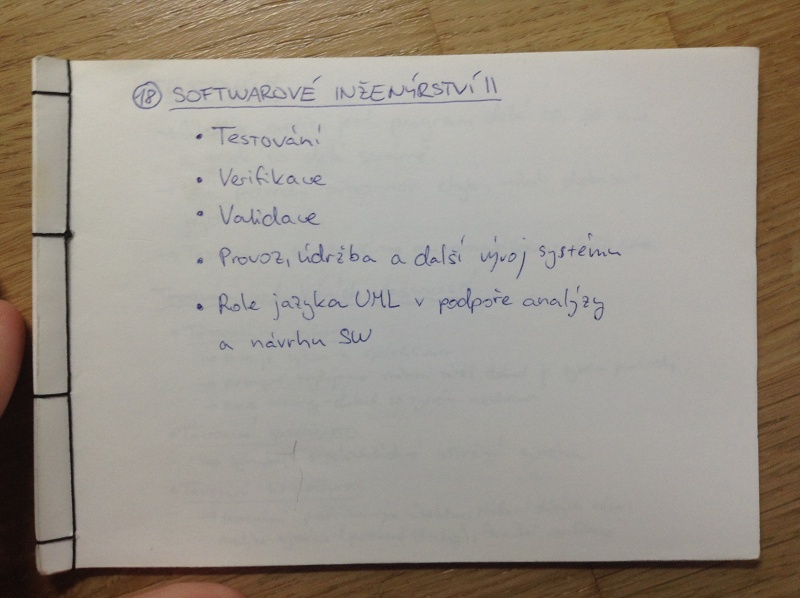 18 SOFTWAROVÉ INŽENÝRSTVÍ II
• Testování
• Verifikace
• Validace
• Provoz, údržba a další vývoj systému
• Role jazyka UML v podpoře analýzy
a návrhu SW